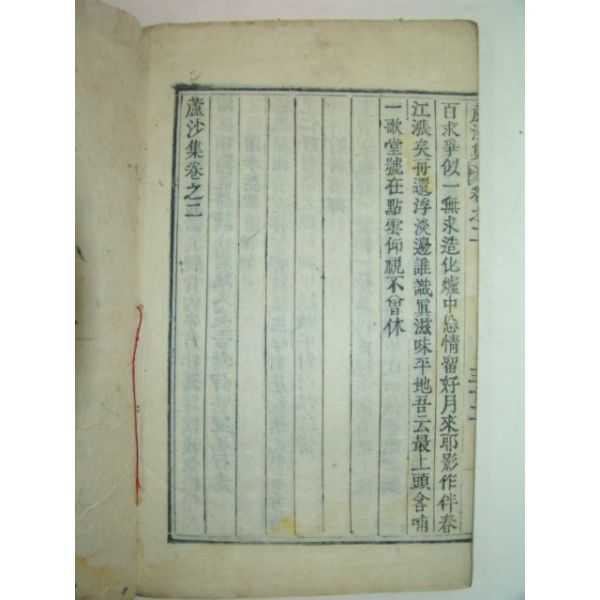 蘆沙集 卷之二
百求爭似一無求造化爐中恣情留好月來耶影作伴春
江漲矣舟還浮淡邊誰識眞滋味平地吾云最上頭含哺
一歌堂號在點雲仰視不曾休
蘆沙集卷之二